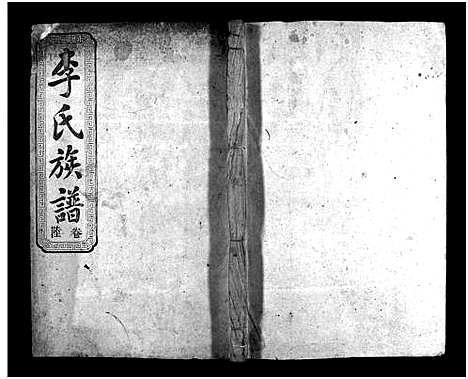 李氏族譜
卷陸